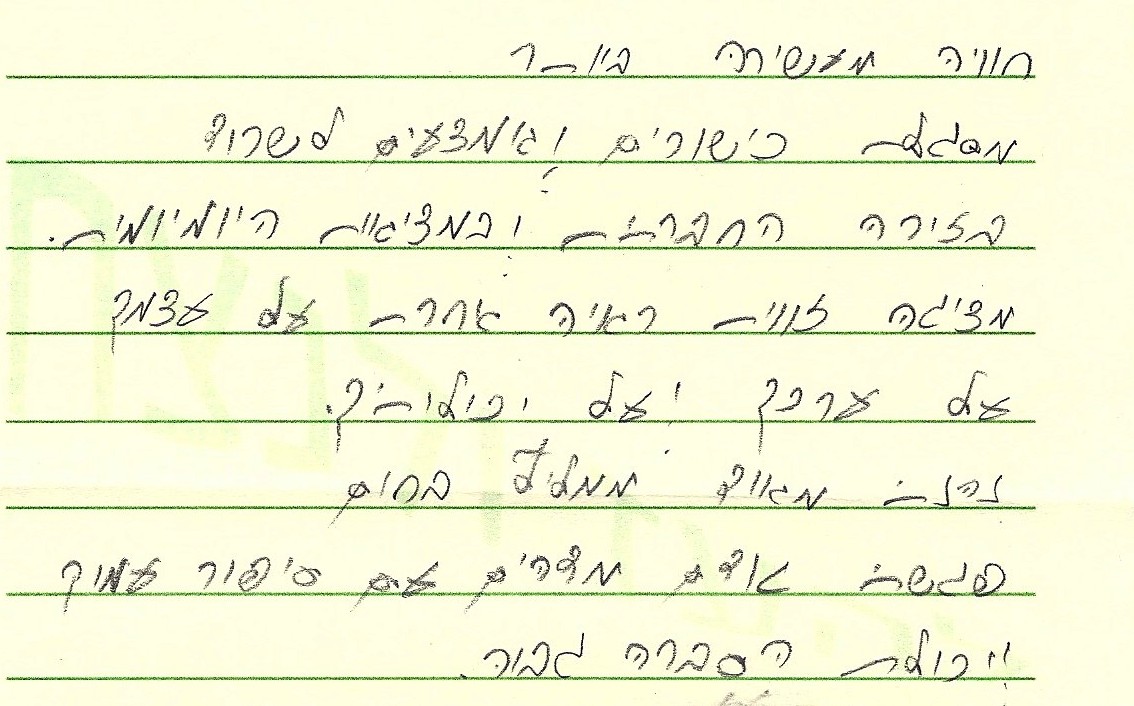 חוויה מעשירה ביותר
מסגלת כישורים ואימצעים לשרוד
בזירה החברתית ובמציאות היומיומית.
מציגה זווית ראיה אחרת על עצמך
על ערכך ועל יכולותיך.
נהנתי מגוון בחום
פגשתי אדם מדהים עם סיפור עמוק
ויכולת הסברה גבוה.